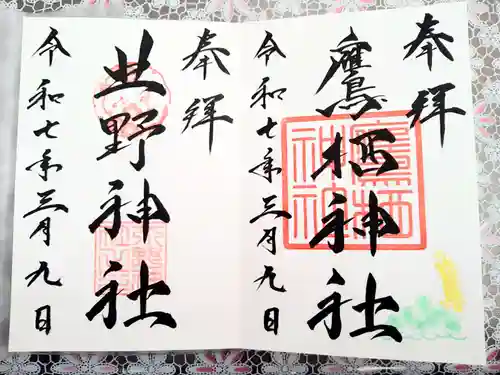 奉拝
鷹栖神社
令和七年三月九日
鷹栖神社
奉拝
野神社
令和七年三月九日